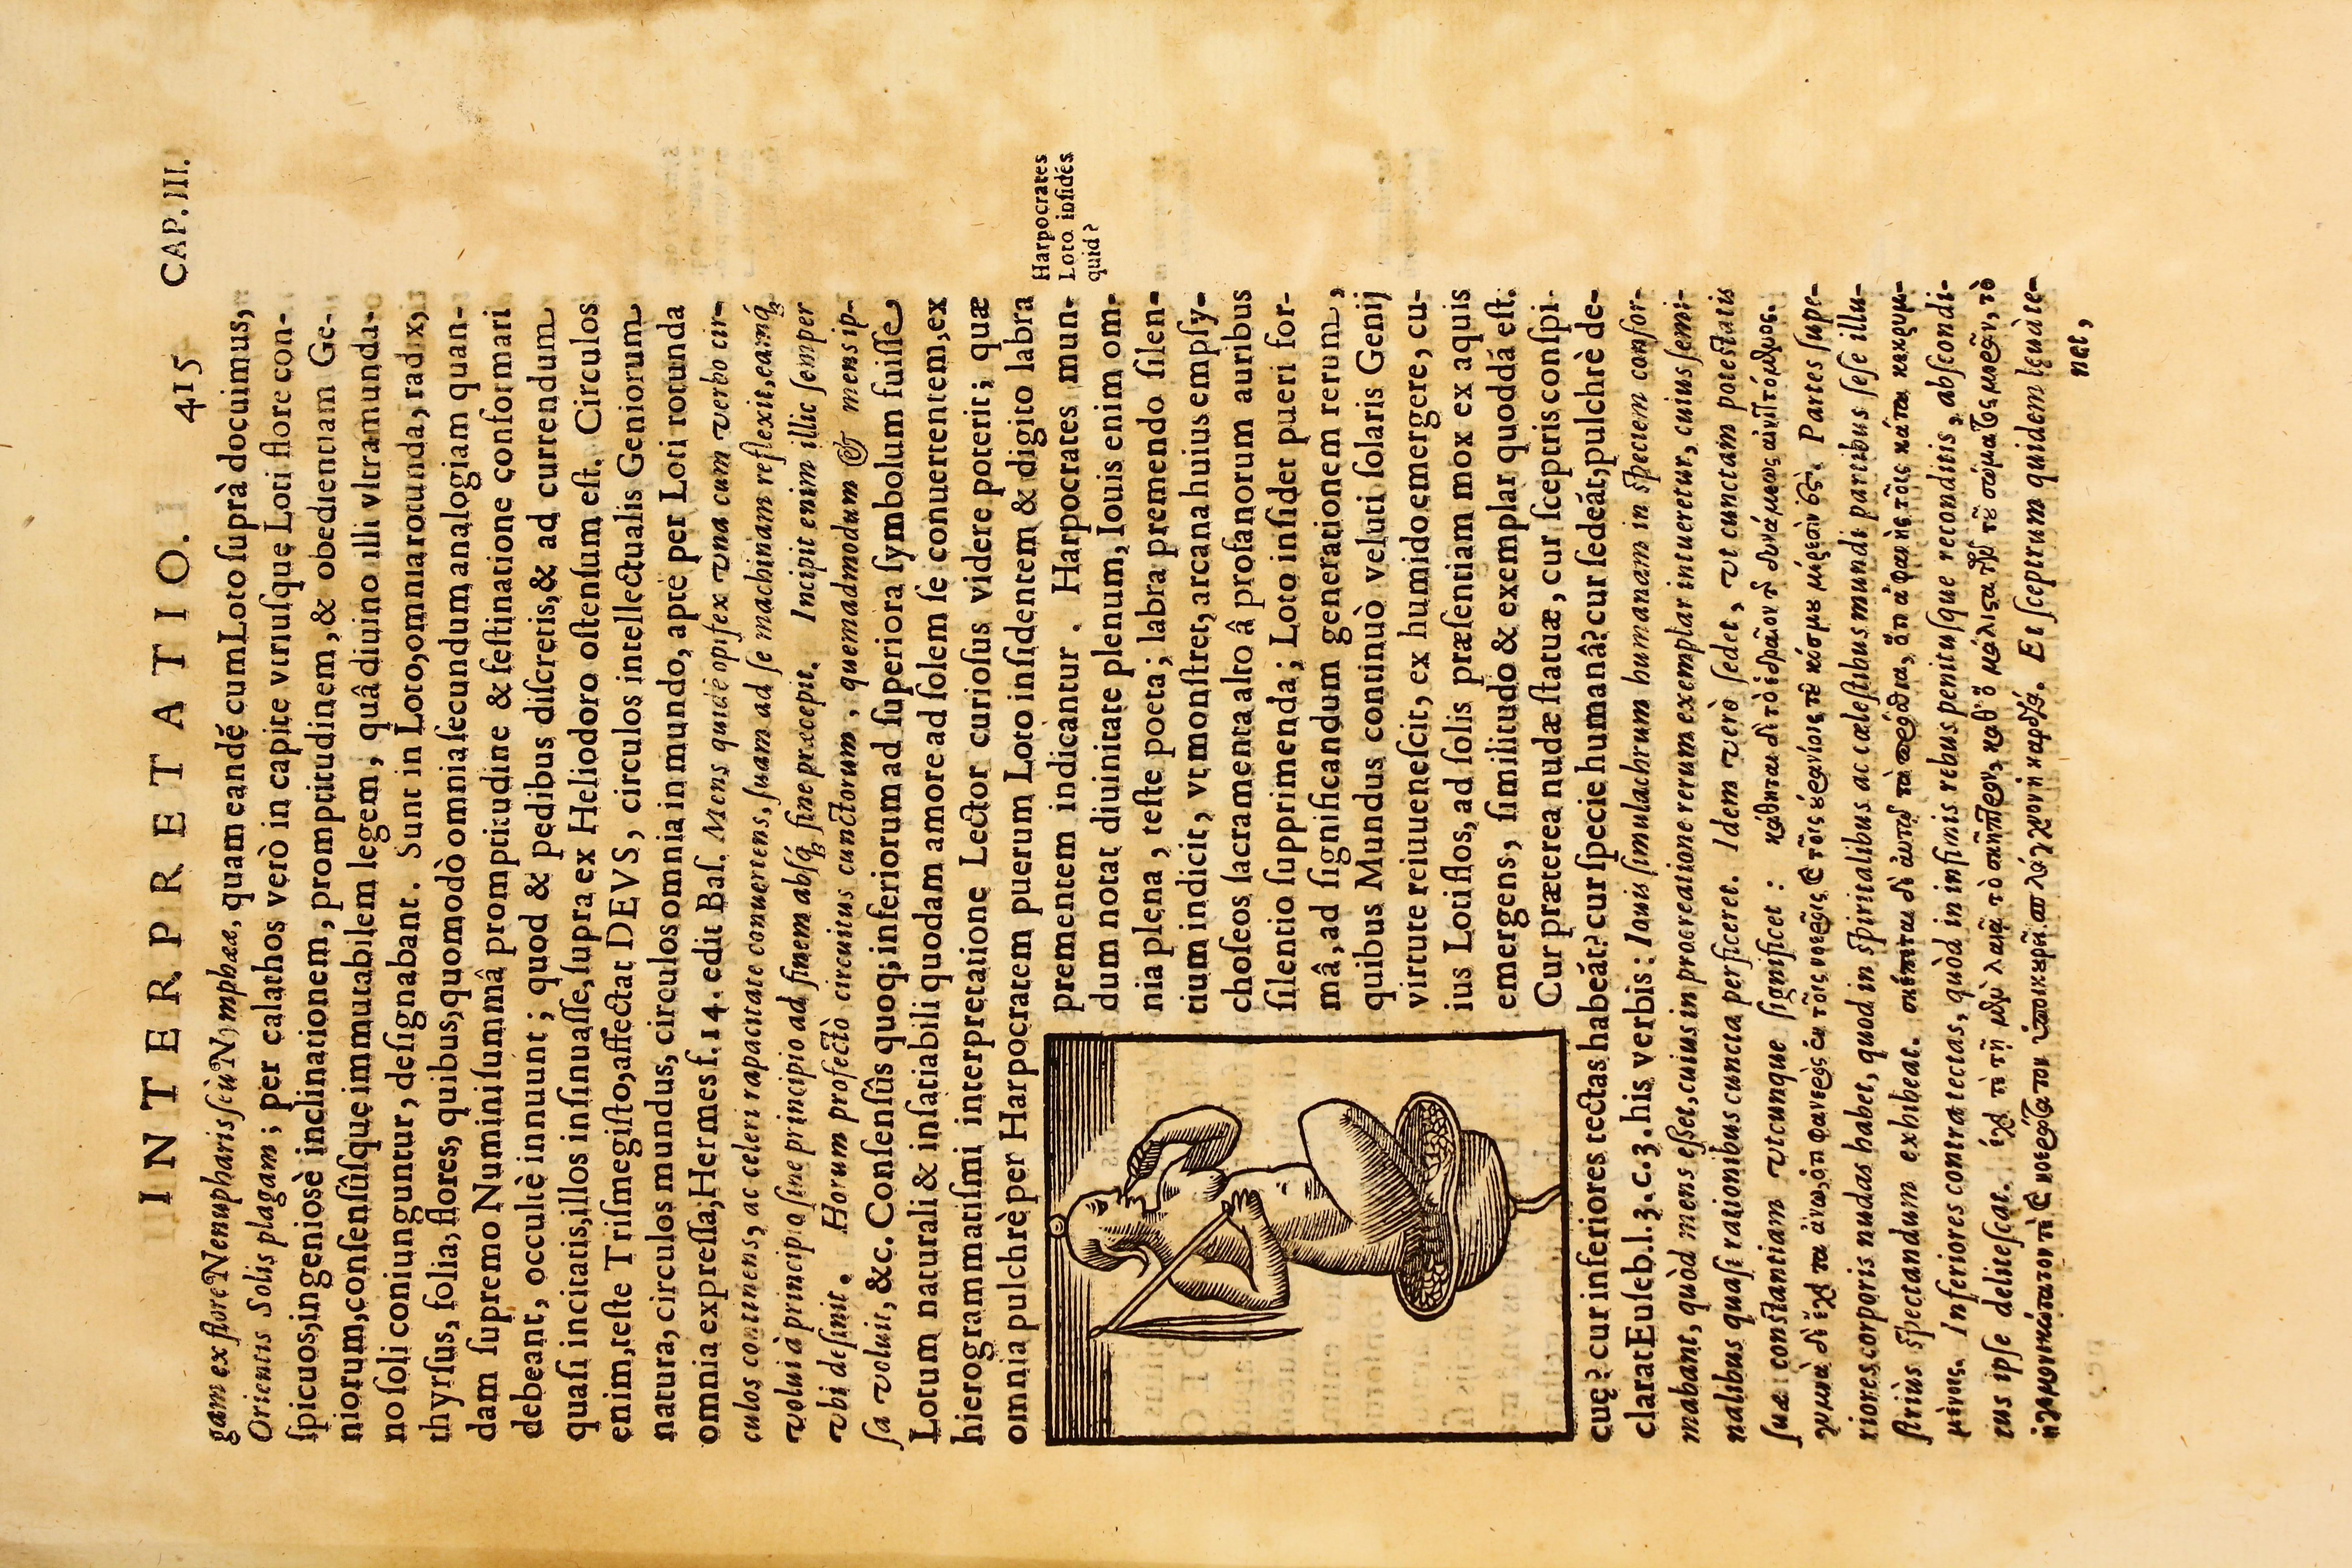 INTERPRETATIO. 415 CAP. III.
gam ex flore Nenupharis ſeù Nymphææ, quam eandẽ cum Loto ſuprà docuimus,
Orientus Solis plagam; per calathos verò in capite vtriuſque Loti flore con-
ſpicuos, ingeniosè inclinationem, promptitudinem, & obedientiam Ge-
niorum, conſenſûſque immutabilem legem, quâ diuino illi vltramunda-
no ſoli coniunguntur, deſignabant. Sunt in Loto, omnia rotunda, radix,
thyrſus, folia, flores, quibus, quomodò omnia ſecundum analogiam quan-
dam ſupremo Numini ſummâ promptitudine & feſtinatione conformari
debeant, occultè innuunt; quod & pedibus diſcretis, & ad currendum
quaſi incitatis, illos inſinuaſſe, ſupra ex Heliodoro oſtenſum eſt. Circulos
enim, teſte Triſmegiſto, affectat DEVS, circulos intellectualis Geniorum
natura, circulos mundus, circulos omnia in mundo, apte per Loti rotunda
omnia expreſſa, Hermes ſ. 14. edit Baſ. Mens quidẽ opifex vna cum verbo cir-
culos continens, ac celeri rapacitate conuertens, ſuam ad ſe machinam reflexit, eamq́;
volui à principio ſine principio ad finem abſq́; fine præcepit. Incipit enim illic ſemper
vbi deſinit. Horum profectò circuitus cunctorum, quemadmodum & mens ip-
ſa voluit, &c. Conſenſûs quoq; inferiorum ad ſuperiora ſymbolum fuiſſe,
Lotum naturali & inſatiabili quodam amore ad ſolem ſe conuertentem, ex
hierogrammatiſmi interpretatione Lector curioſus videre poterit; quæ
omnia pulchrè per Harpocratem puerum Loto inſidentem & digito labra
Harpocrates
Loto inſidẽs
quid?
prementem indicantur. Harpocrates mun-
dum notat diuinitate plenum, Iouis enim om-
nia plena, teſte poeta; labra premendo ſilen-
tium indicit, vt monſtret, arcana huius empſy-
choſeos ſacramenta alto â profanorum auribus
ſilentio ſupprimenda; Loto inſidet pueri for-
mâ, ad ſignificandum generationem rerum,
quibus Mundus continuò veluti ſolaris Genij
virtute reiuueneſcit, ex humido emergere, cu-
ius Loti flos, ad ſolis præſentiam mox ex aquis
emergens, ſimilitudo & exemplar quoddã eſt.
Cur præterea nudæ ſtatuæ, cur ſceptris conſpi-
cuę? cur inferiores tectas habeãt? cur ſpecie humanâ? cur ſedeãt, pulchrè de-
clarat Euſeb. l. 3. c. 3. his verbis: Iouis ſimulachrum humanam in ſpeciem confor-
mabant, quòd mens eſſet, cuius in procreatione rerum exemplar intueretur, cuius ſemi-
nalibus quaſi rationibus cuncta perficeret. Idem verò ſedet, vt cunctam poteſtatis
ſuæ conſtantiam vtcunque ſignificet: κάθηται δὲ τὸ ἑδραῖον τ̃ δυνάμεως αἰνιττόμενος.
γυμνὰ δὲ ἔχει τὰ ἄνω, ὅτι φανερὸς ἐν τοῖς νοεροῖς & τοῖς οὐρανίοις τοῦ κόσμου μέρεσίν ἐστι. Partes ſupe-
riores corporis nudas habet, quod in ſpiritalibus ac cæleſtibus mundi partibus ſeſe illu-
ſtriùs ſpectandum exhibeat. σκέπεται δὲ αὐτῷ τὰ πρόσθια, ὅτι ἀφανὴς τοῖς κάτω κεκρυμ-
μένοις. Inferiores contra tectas, quòd in infimis rebus penituſque reconditis, abſcondi-
tus ipſe deliteſcat. ἔχει τε τῇ μὲν λαιᾷ τὸ σκῆπτρον, καθ' ὃ μάλιστα τῶν τοῦ σώματος μερῶν, τὸ
ἡγεμονικώτατόν τε & νοερώτατον ὑποικουρεῖ σπλάγχνον ἡ καρδία. Et ſceptrum quidem lęuâ te-
net,